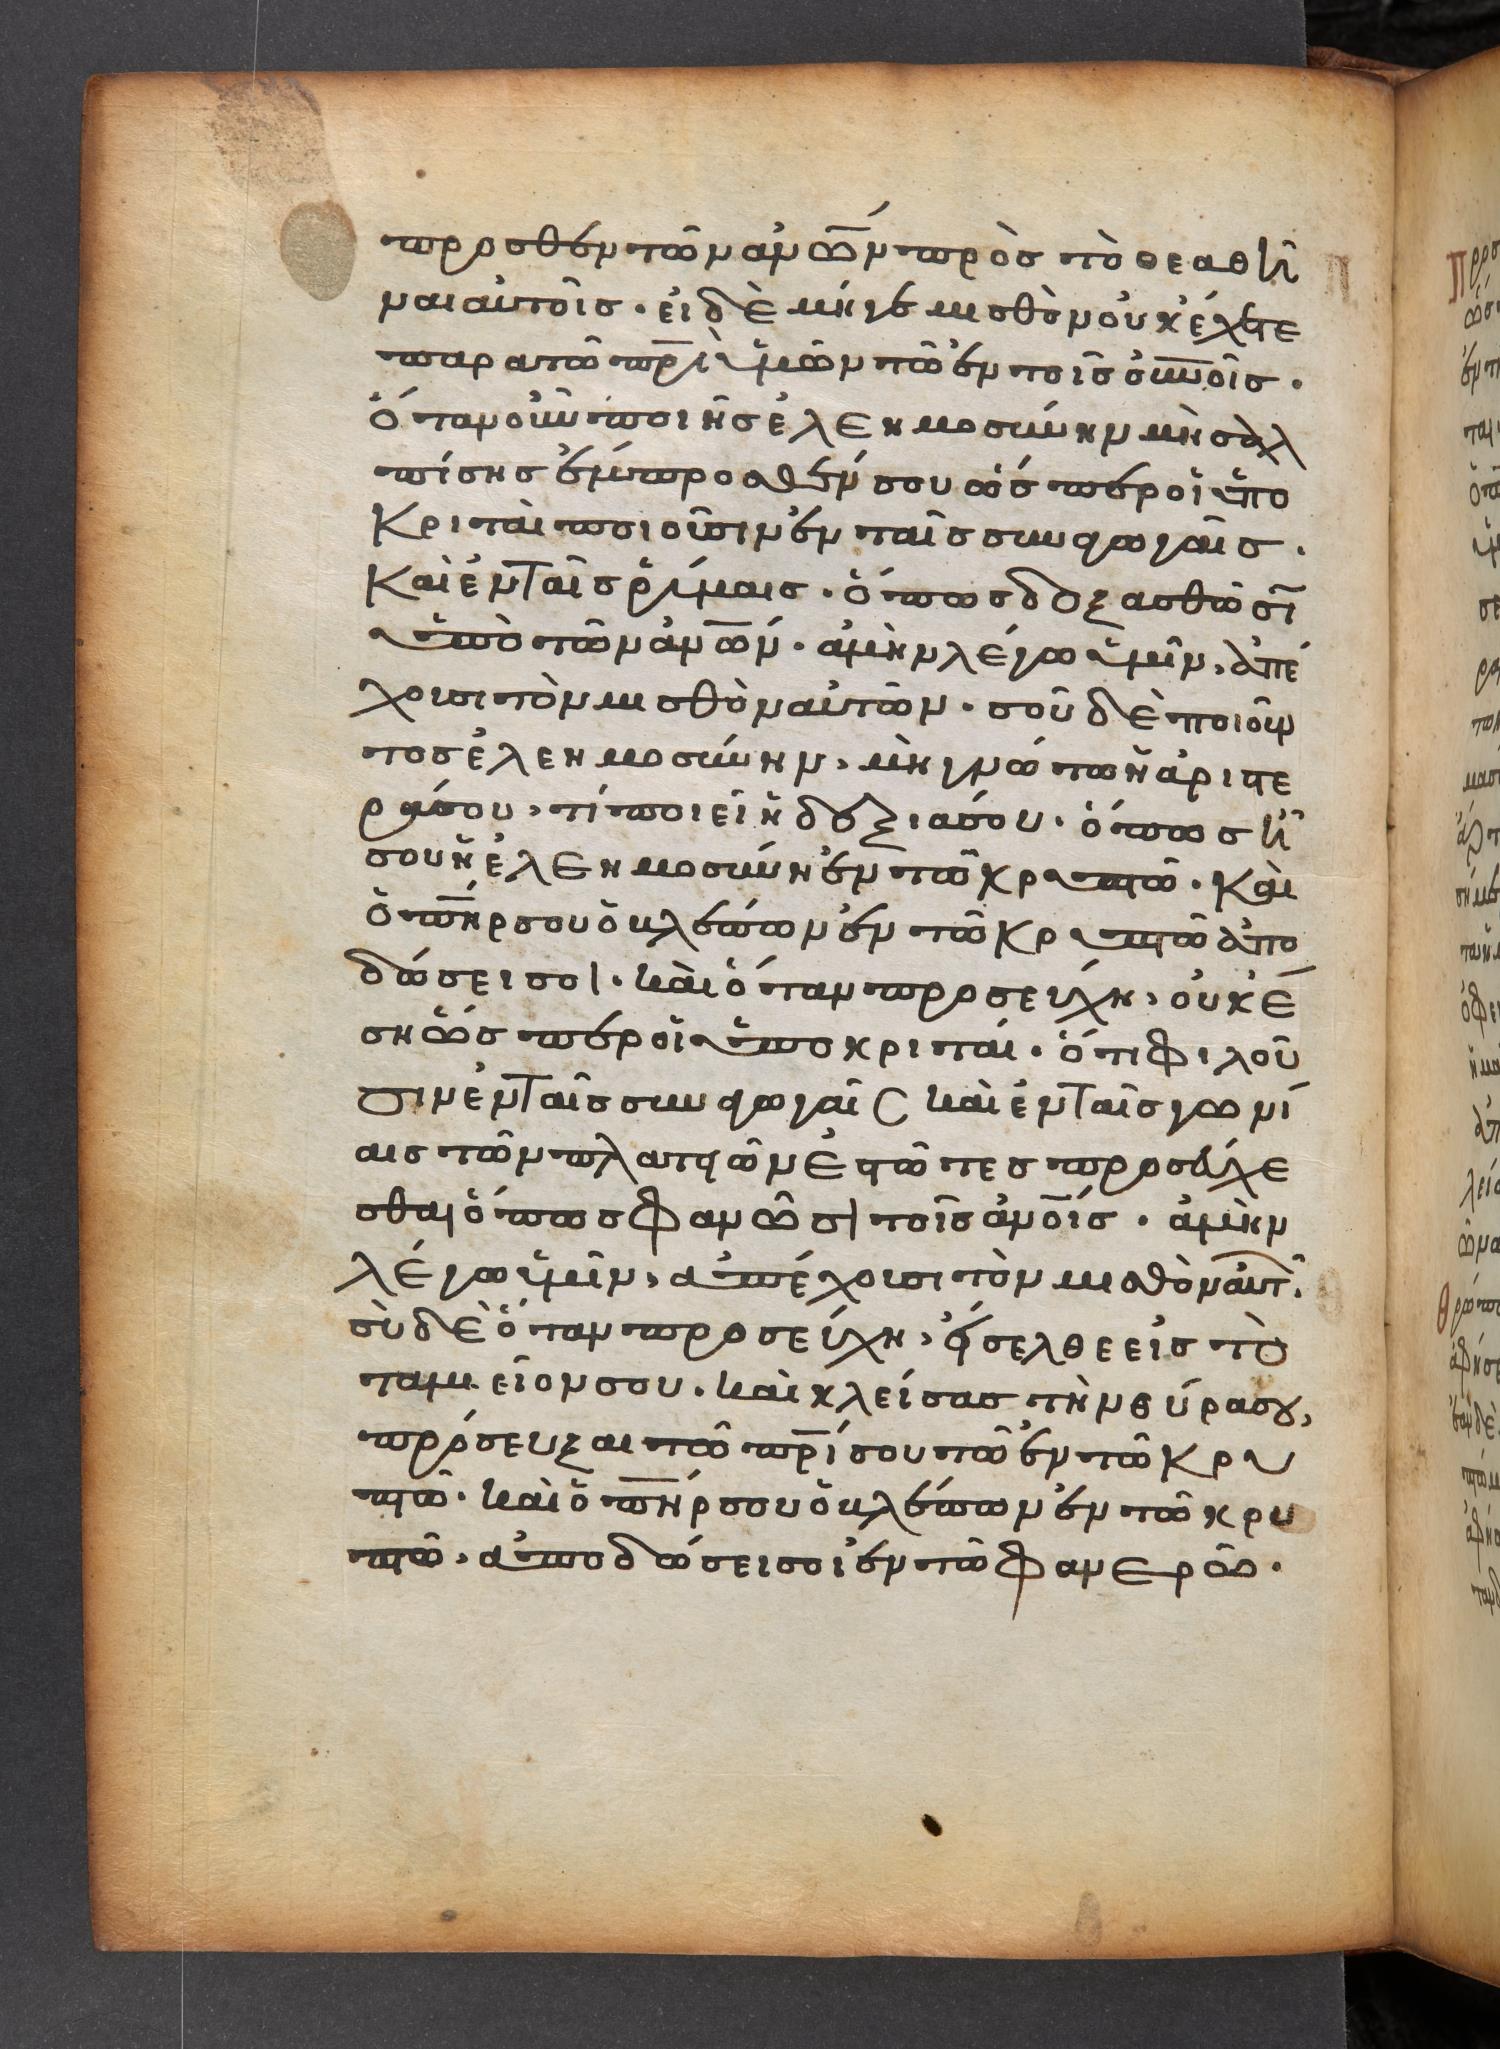 προσθεν τῶν ἀνω̅ν πρὸς τὸ θεαθῆ
ναι αὐτοῖς · εἰ δὲ μήγε μισθὸν οὐκ ἔχετε
παρα τῶ πρ̅ι ὑμῶν τῶ ἐν τοῖς οὐ̅νοῖς ·
ὅταν οὖν ποιῆς ἐλεημοσύνην μὴ σαλ
πίσης ἔμπροσθέν σου ὥσπερ οἱ ὑπο
κριταὶ ποιοῦσιν ἐν ταῖς συναγωγαῖς ·
καὶ ἐν ταῖς ῥύμαις · ὅπως δοξασθῶσῖ
ὑπὸ τῶν ἀνω̅ν · ἀμὴν λέγω ὑμῖν, ἀπέ
χουσι τὸν μισθὸν αὐτῶν · σοῦ δὲ ποιοῦν
τος ἐλεημοσύνην, μὴ γνώτω ἡ ἀριστε
ρά σου, τί ποιεῖ ἡ δεξιά σου · ὅπως ῆ
σου ἡ ἐλεημοσύνη ἐν τῶ κρυπτῶ · καὶ
ὁ πη̅ρ σου ὁ βλέπων ἐν τῶ κρυπτῶ ἀπο
δώσει σοι · καὶ ὅταν προσεύχη, οὐκ ἔ
ση ὥσπερ οἱ ὑποκριταί · ὅτι φιλοῦ
σιν ἐν ταῖς συναγωγαῖς καὶ ἐν ταῖς γωνί
αις τῶν πλατειῶν ἑστῶτες προσεύχε
σθαι ὅπως φανῶσι τοῖς ἀνο̅ις · ἀμὴν
λέγω ὑμῖν, ἀπέχουσι τὸν μισθὸν αὐτ ·
σὺ δὲ ὅταν προσεύχη, εἴσελθε εἰς τὸ
ταμιεῖον σου · καὶ κλείσας τὴν θύρα σου,
πρόσευξαι τῶ πρ̅ι σου τῶ ἐν τῶ κρυ
πτῶ · καὶ ὁ πη̅ρ σου ὁ βλέπων ἐν τῶ κρυ
πτῶ, ἀποδώσει σοι ἐν τῶ φανερῶ ·